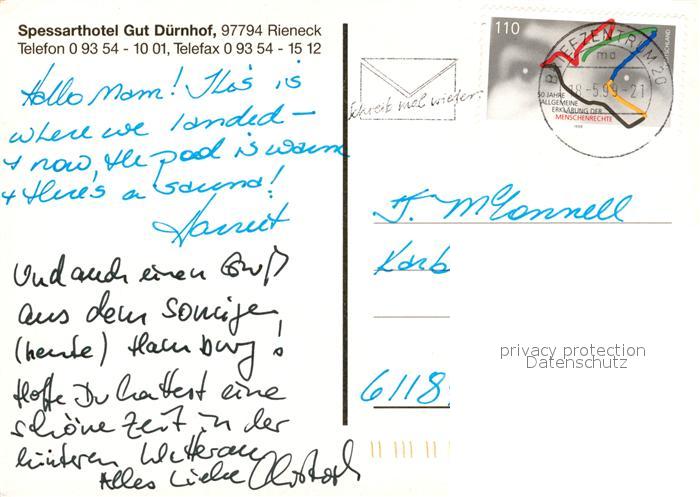 Spessarthotel Gut Dürnhof, 97794 Rieneck
Telefon 0 93 54 - 10 01, Telefax 0 93 54 - 15 12
Hallo Mam! This is
where we landed –
+ now, the pool is warm
+ there's a sauna!
Harriet
Und auch einen Gruß
aus dem sonnigen
(heute) Hamburg!
Hoffe Du hattest eine
schöne Zeit in der
hinteren Wetterau
Alles Liebe Christoph
110
DEUTSCHLAND
50 JAHRE
ALLGEMEINE
ERKLÄRUNG DER
MENSCHENRECHTE
1998
BRIEFZENTRUM 20
ma
18.-5.99-21
Schreib mal wieder
J. McConnell
Karb
6118
privacy protection
Datenschutz